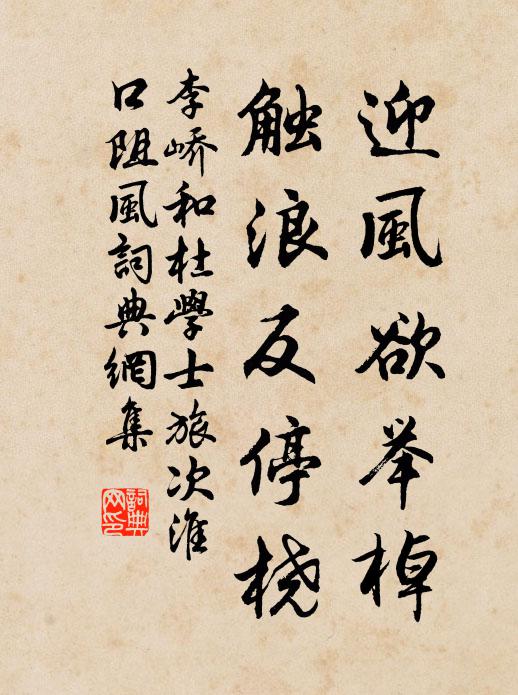 迎風欲举棹
触浪反停桡
李嶠和杜學士旅次淮
口阻風詞典網集
詞典網印